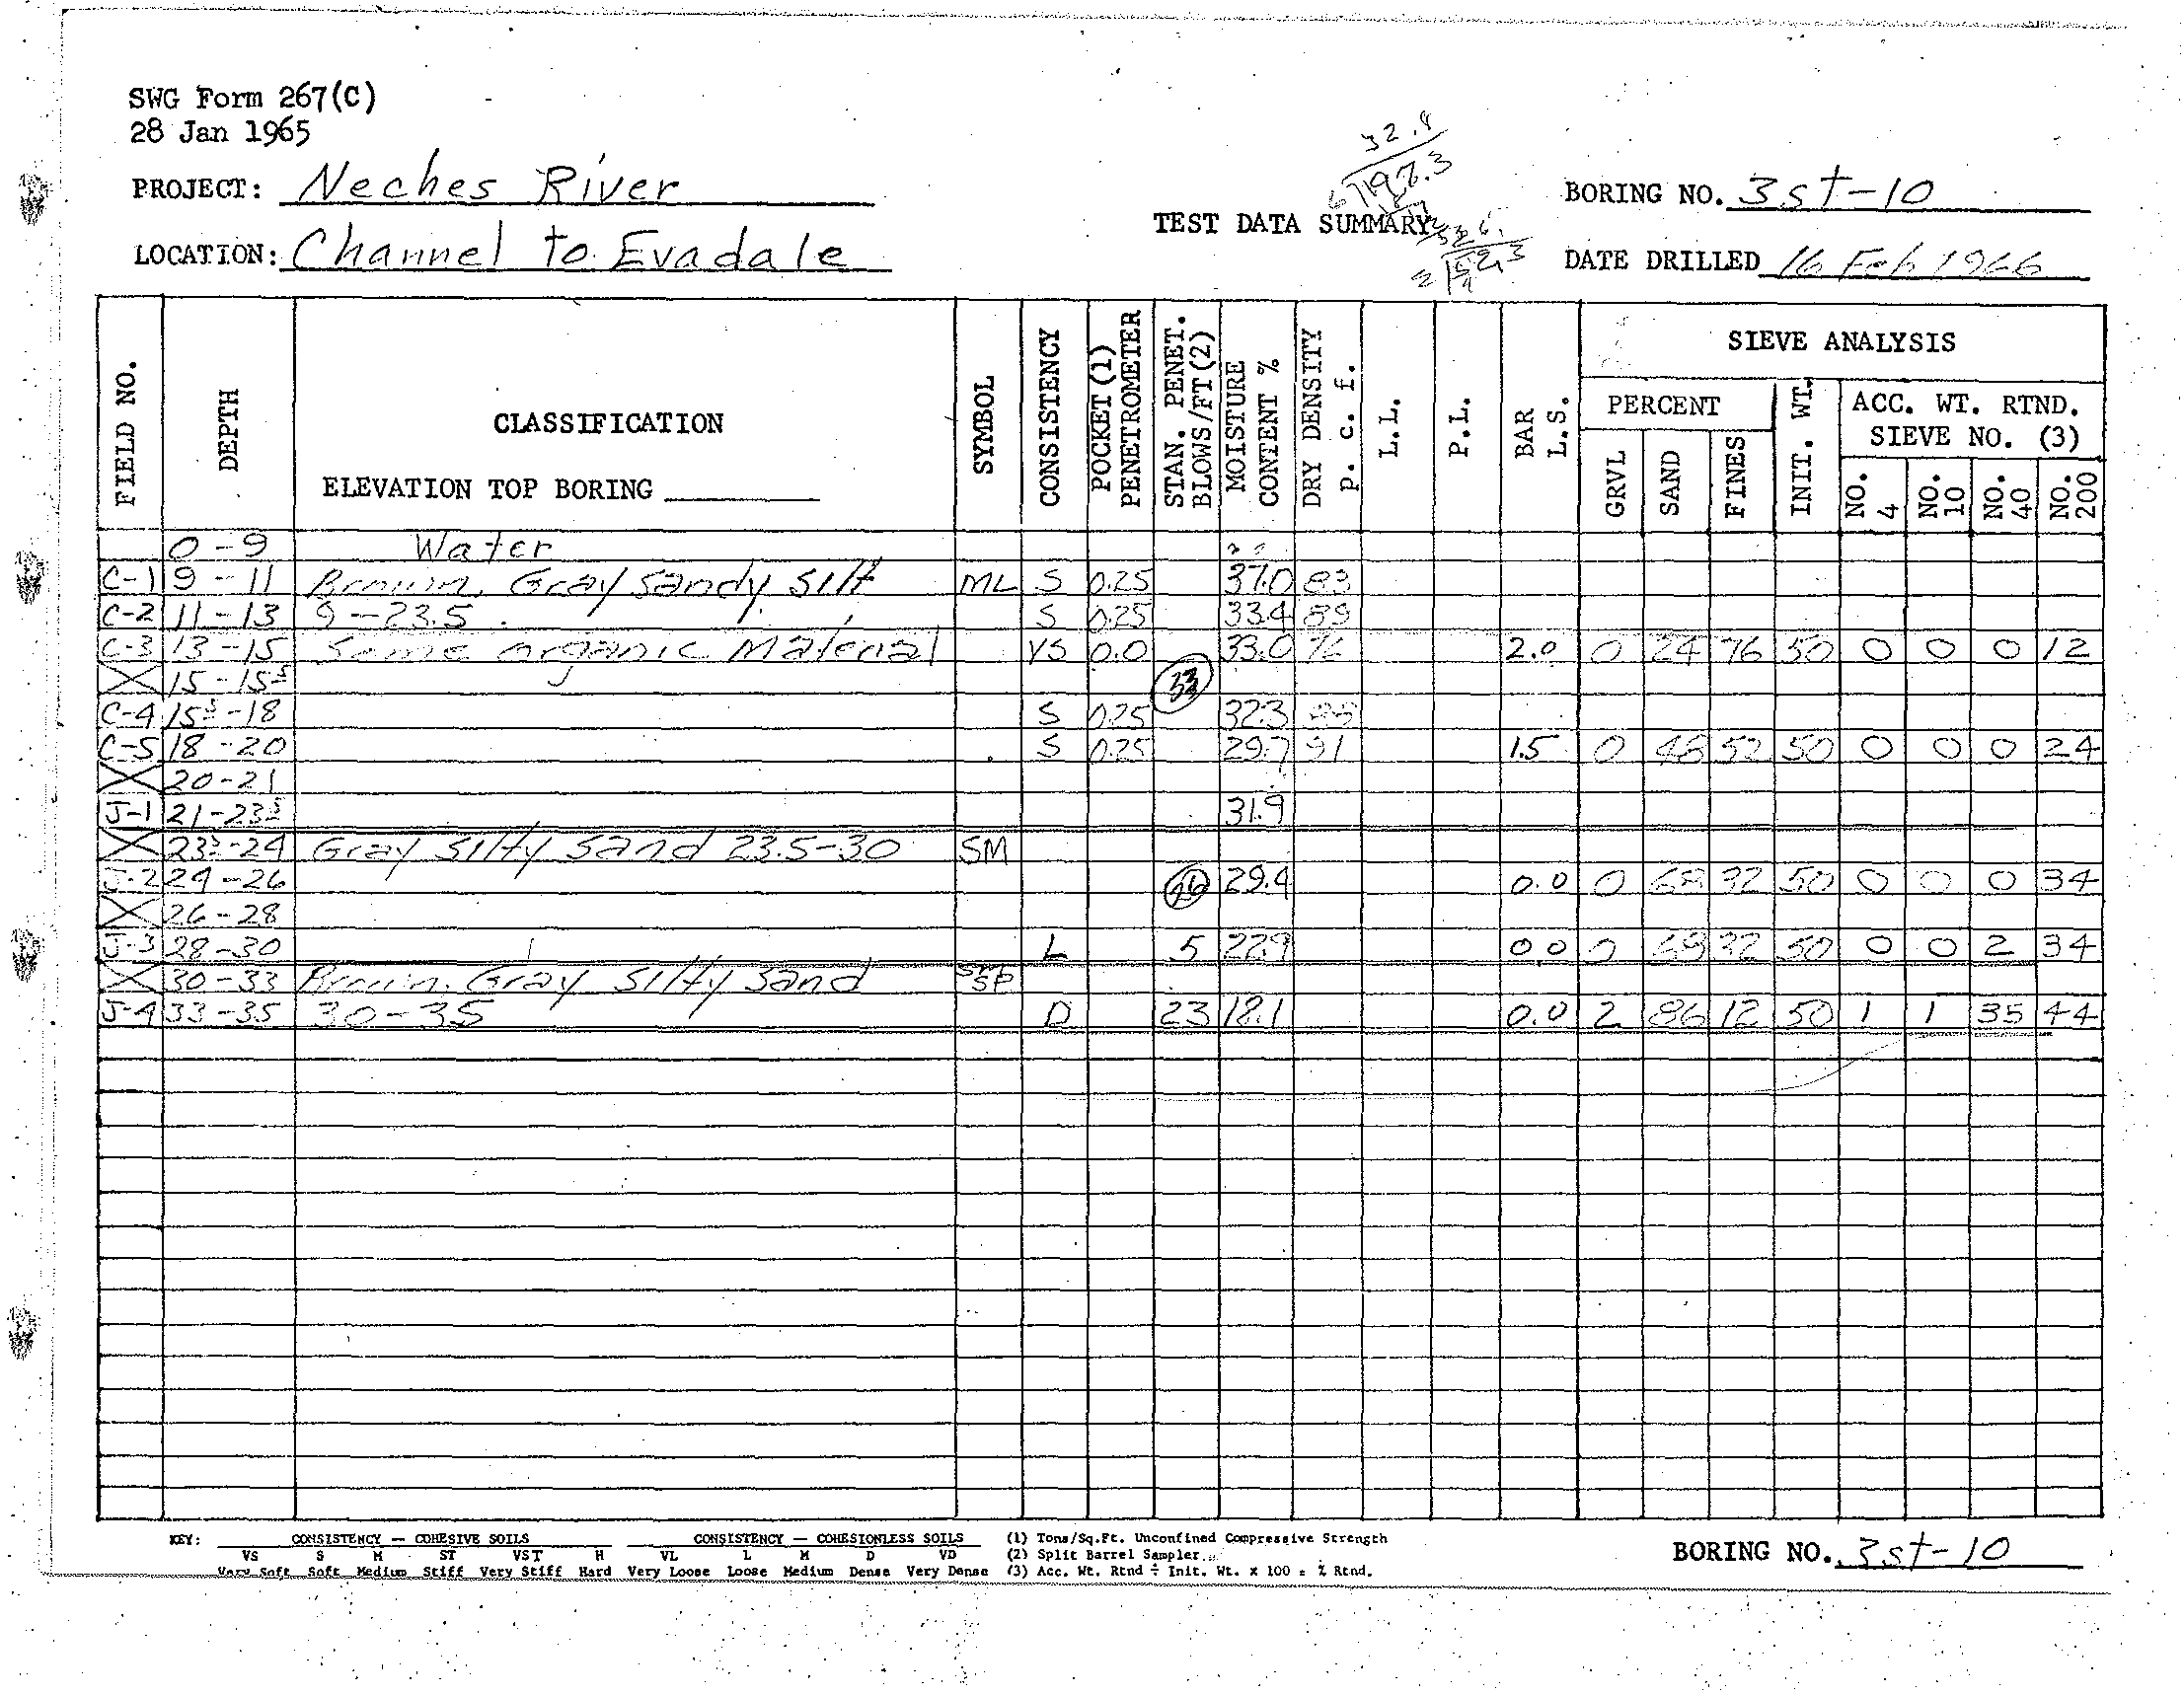 SWG Form 267(C)
28 Jan 1965
PROJECT: Neches River
LOCATION: Channel to Evadale
TEST DATA SUMMARY
BORING NO. 3st-10
DATE DRILLED 16 Feb 1966
FIELD NO. DEPTH CLASSIFICATION SYMBOL CONSISTENCY POCKET (1) PENETROMETER STAN. PENET. BLOWS/FT(2) MOISTURE CONTENT % DRY DENSITY p. c. f. L.L. P.L. BAR L.S. SIEVE ANALYSIS
ELEVATION TOP BORING
PERCENT INIT. WT. ACC. WT. RTND. SIEVE NO. (3)
GRVL SAND FINES NO. 4 NO. 10 NO. 40 NO. 200
0-9 Water
C-1 9-11 Brown, Gray sandy silt ML S 0.25 37.0 83
C-2 11-13 9-23.5 S 0.25 33.4 89
C-3 13-15 Some organic Material VS 0.0 33.0 2.0 0 24 76 50 0 0 0 12
X 15-15⁵ 33
C-4 15⁵-18 S 0.25 32.3
C-5 18-20 S 0.25 29.7 91 1.5 0 48 52 50 0 0 0 24
X 20-21
J-1 21-23⁵ 31.9
X 23⁵-24 Gray silty sand 23.5-30 SM
J-2 24-26 26 29.4 0.0 0 68 32 50 0 0 0 34
X 26-28
J-3 28-30 L 5 22.9 0.0 0 68 32 50 0 0 2 34
X 30-33 Brown, Gray silty sand
J-4 33-35 30-35 D 23 18.1 0.0 2 86 12 50 1 1 35 44
KEY: CONSISTENCY — COHESIVE SOILS CONSISTENCY — COHESIONLESS SOILS (1) Tons/Sq.Ft. Unconfined Compressive Strength
VS S M ST VST H VL L M D VD (2) Split Barrel Sampler
Very Soft Soft Medium Stiff Very Stiff Hard Very Loose Loose Medium Dense Very Dense (3) Acc. Wt. Rtnd ÷ Init. Wt. x 100 = % Rtnd.
BORING NO. 3st-10